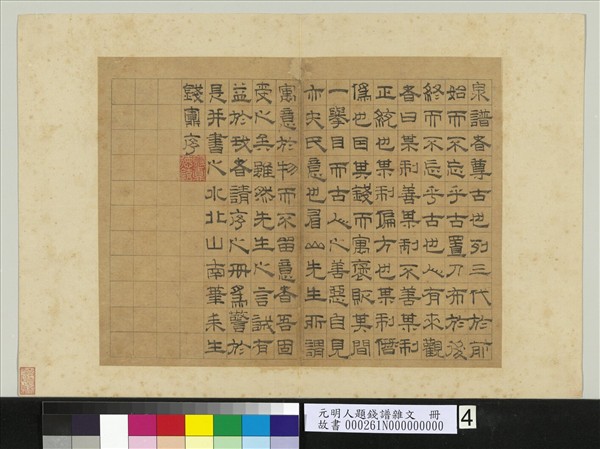 泉譜者尊古也列三代於前
始而不忘乎古置刀布於後
終而不忘乎古也人有来觀
者曰某制善某制不善某制
正統也某制偏方也某制僭
偽也因其錢而寓褒貶其間
一舉目而古人之善惡自見
亦史氏意也眉山先生所謂
寓意於物而不留意者吾固
受之矣雖然先生之言誠有
益於我者請序之冊為警於
是并書之水北山南筆耒生
錢鼐序
元明人題錢譜雜文 冊
故書 000261N000000000
4